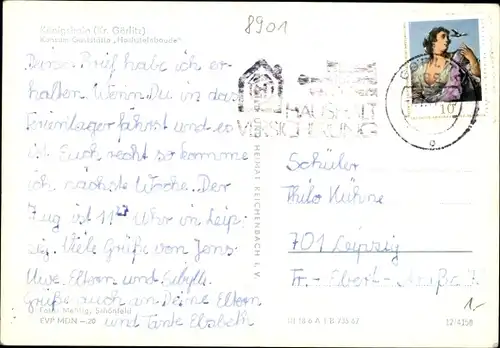 8901
Königshain (Kr. Görlitz)
Konsum-Gaststätte „Hochsteinbaude"
Deinen Brief habe ich er-
halten. Wenn Du in das
Ferienlager fährst und es
ist Euch recht so komme
ich nächste Woche. Der
Zug ist 11²⁷ Uhr in Leip-
zig. Viele Grüße von Jens
Uwe Eltern und Sibylle
Grüße auch an Deine Eltern
und Tante Elsbeth
HAUSHALT
VERSICHERUNG
UND HEIMAT REICHENBACH i. V.
Schüler
Thilo Kühne
701 Leipzig
Fr.-Ebert-Straße
Foto: Mehlig, Schönfeld
EVP MDN -.20
III 18 6 A 1 B 735 67
12/4158
1,-